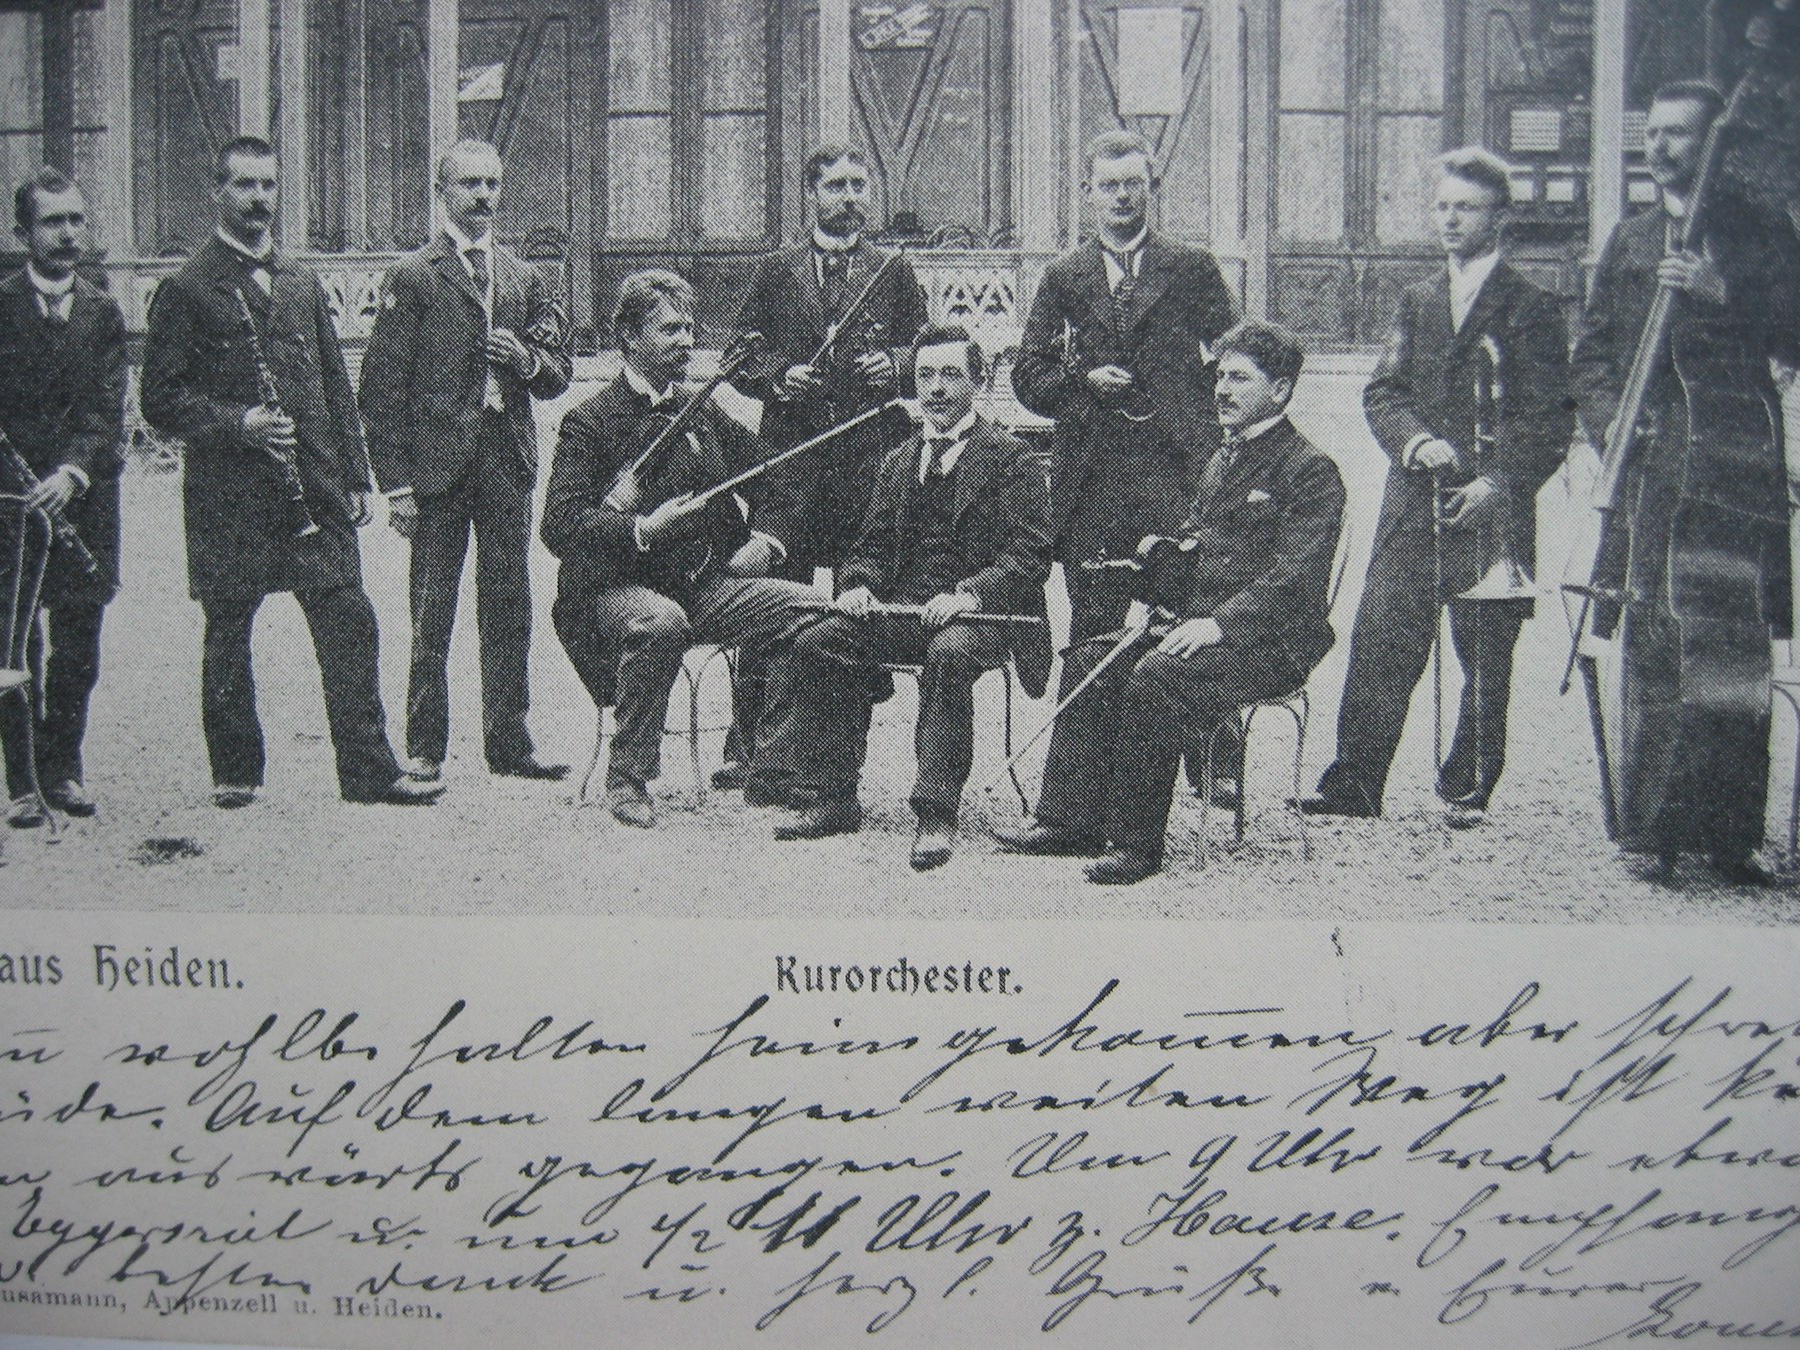 aus Heiden.
Kurorchester.
wohlbehalten heimgekommen aber
Auf dem langen weiten Weg ist
auswärts gegangen. Um 9 Uhr war
Eggersriet u. um 1/2 11 Uhr z. Hause. Empfang
besten Dank u. herzl. Grüße v. Eurer
usamann, Appenzell u. Heiden.